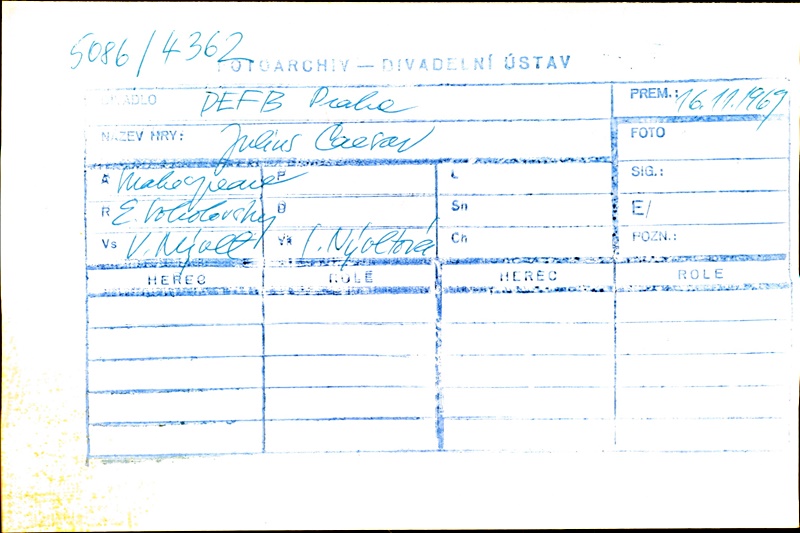 5086/4362
FOTOARCHIV — DIVADELNÍ ÚSTAV
DIVADLO DEFB Praha PREM.: 16.11.1969
NÁZEV HRY: Julius Caesar FOTO
A Shakespeare P L SIG.:
R E. Sokolovský D Sn E/
Vs V. Nývlt Vk I. Nývltová Ch POZN.:
HEREC ROLE HEREC ROLE